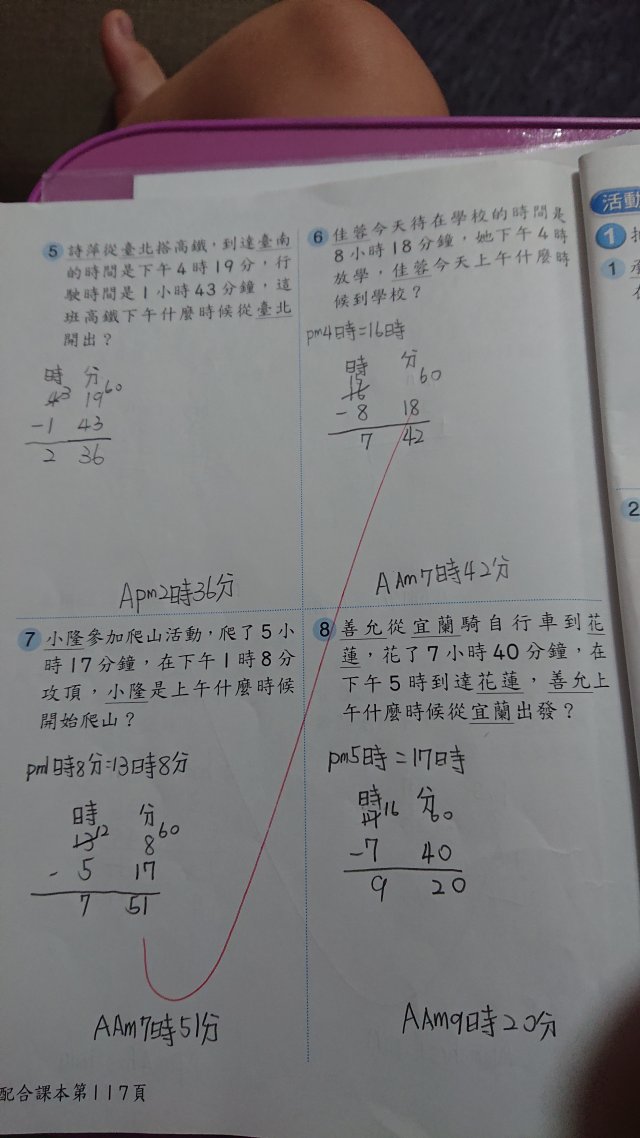 5 詩萍從臺北搭高鐵，到達臺南
的時間是下午4時19分，行
駛時間是1小時43分鐘，這
班高鐵下午什麼時候從臺北
開出？
時 分
4 3 19 60
-1 43
2 36
A pm2時36分
6 佳蓉今天待在學校的時間是
8小時18分鐘，她下午4時
放學，佳蓉今天上午什麼時
候到學校？
pm4時=16時
時 分
15 60
16
-8 18
7 42
A Am7時42分
7 小隆參加爬山活動，爬了5小
時17分鐘，在下午1時8分
攻頂，小隆是上午什麼時候
開始爬山？
pm1時8分=13時8分
時 分
13 12 8 60
-5 17
7 51
A Am7時51分
8 善允從宜蘭騎自行車到花
蓮，花了7小時40分鐘，在
下午5時到達花蓮，善允上
午什麼時候從宜蘭出發？
pm5時=17時
時 分
17 16 60
-7 40
9 20
A Am9時20分
配合課本第117頁
活動
1
1
2